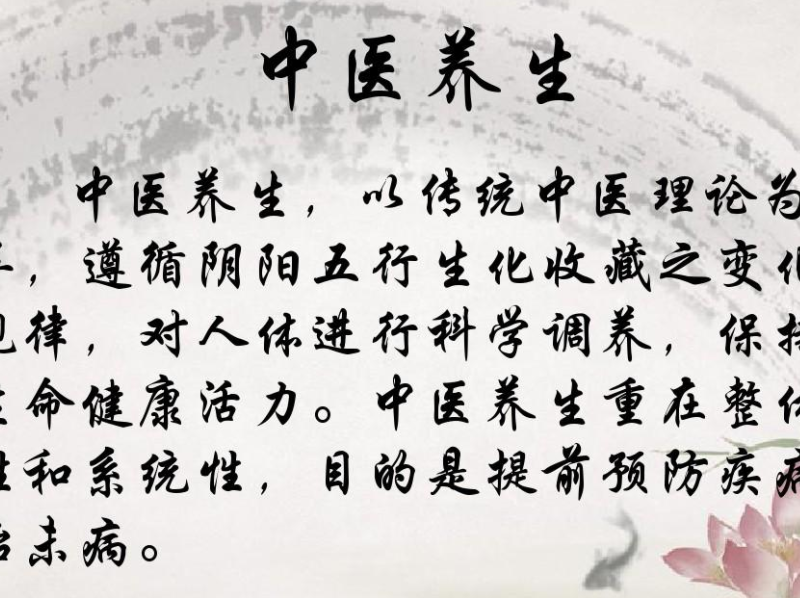 中医养生
中医养生，以传统中医理论为
，遵循阴阳五行生化收藏之变化
规律，对人体进行科学调养，保持
生命健康活力。中医养生重在整体
性和系统性，目的是提前预防疾病
治未病。